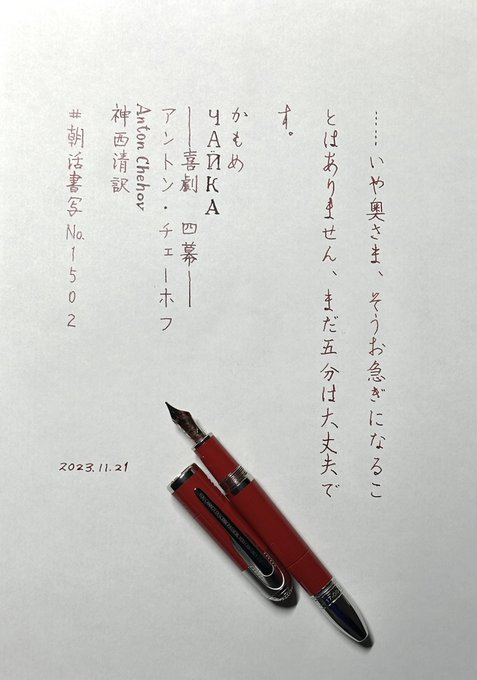 ……いや奥さま、そうお急ぎになるこ
とはありません、まだ五分は大丈夫で
す。
かもめ
ЧАЙКА
──喜劇 四幕──
アントン・チェーホフ
Anton Chehov
神西清訳
#朝活書写No.1502
2023.11.21